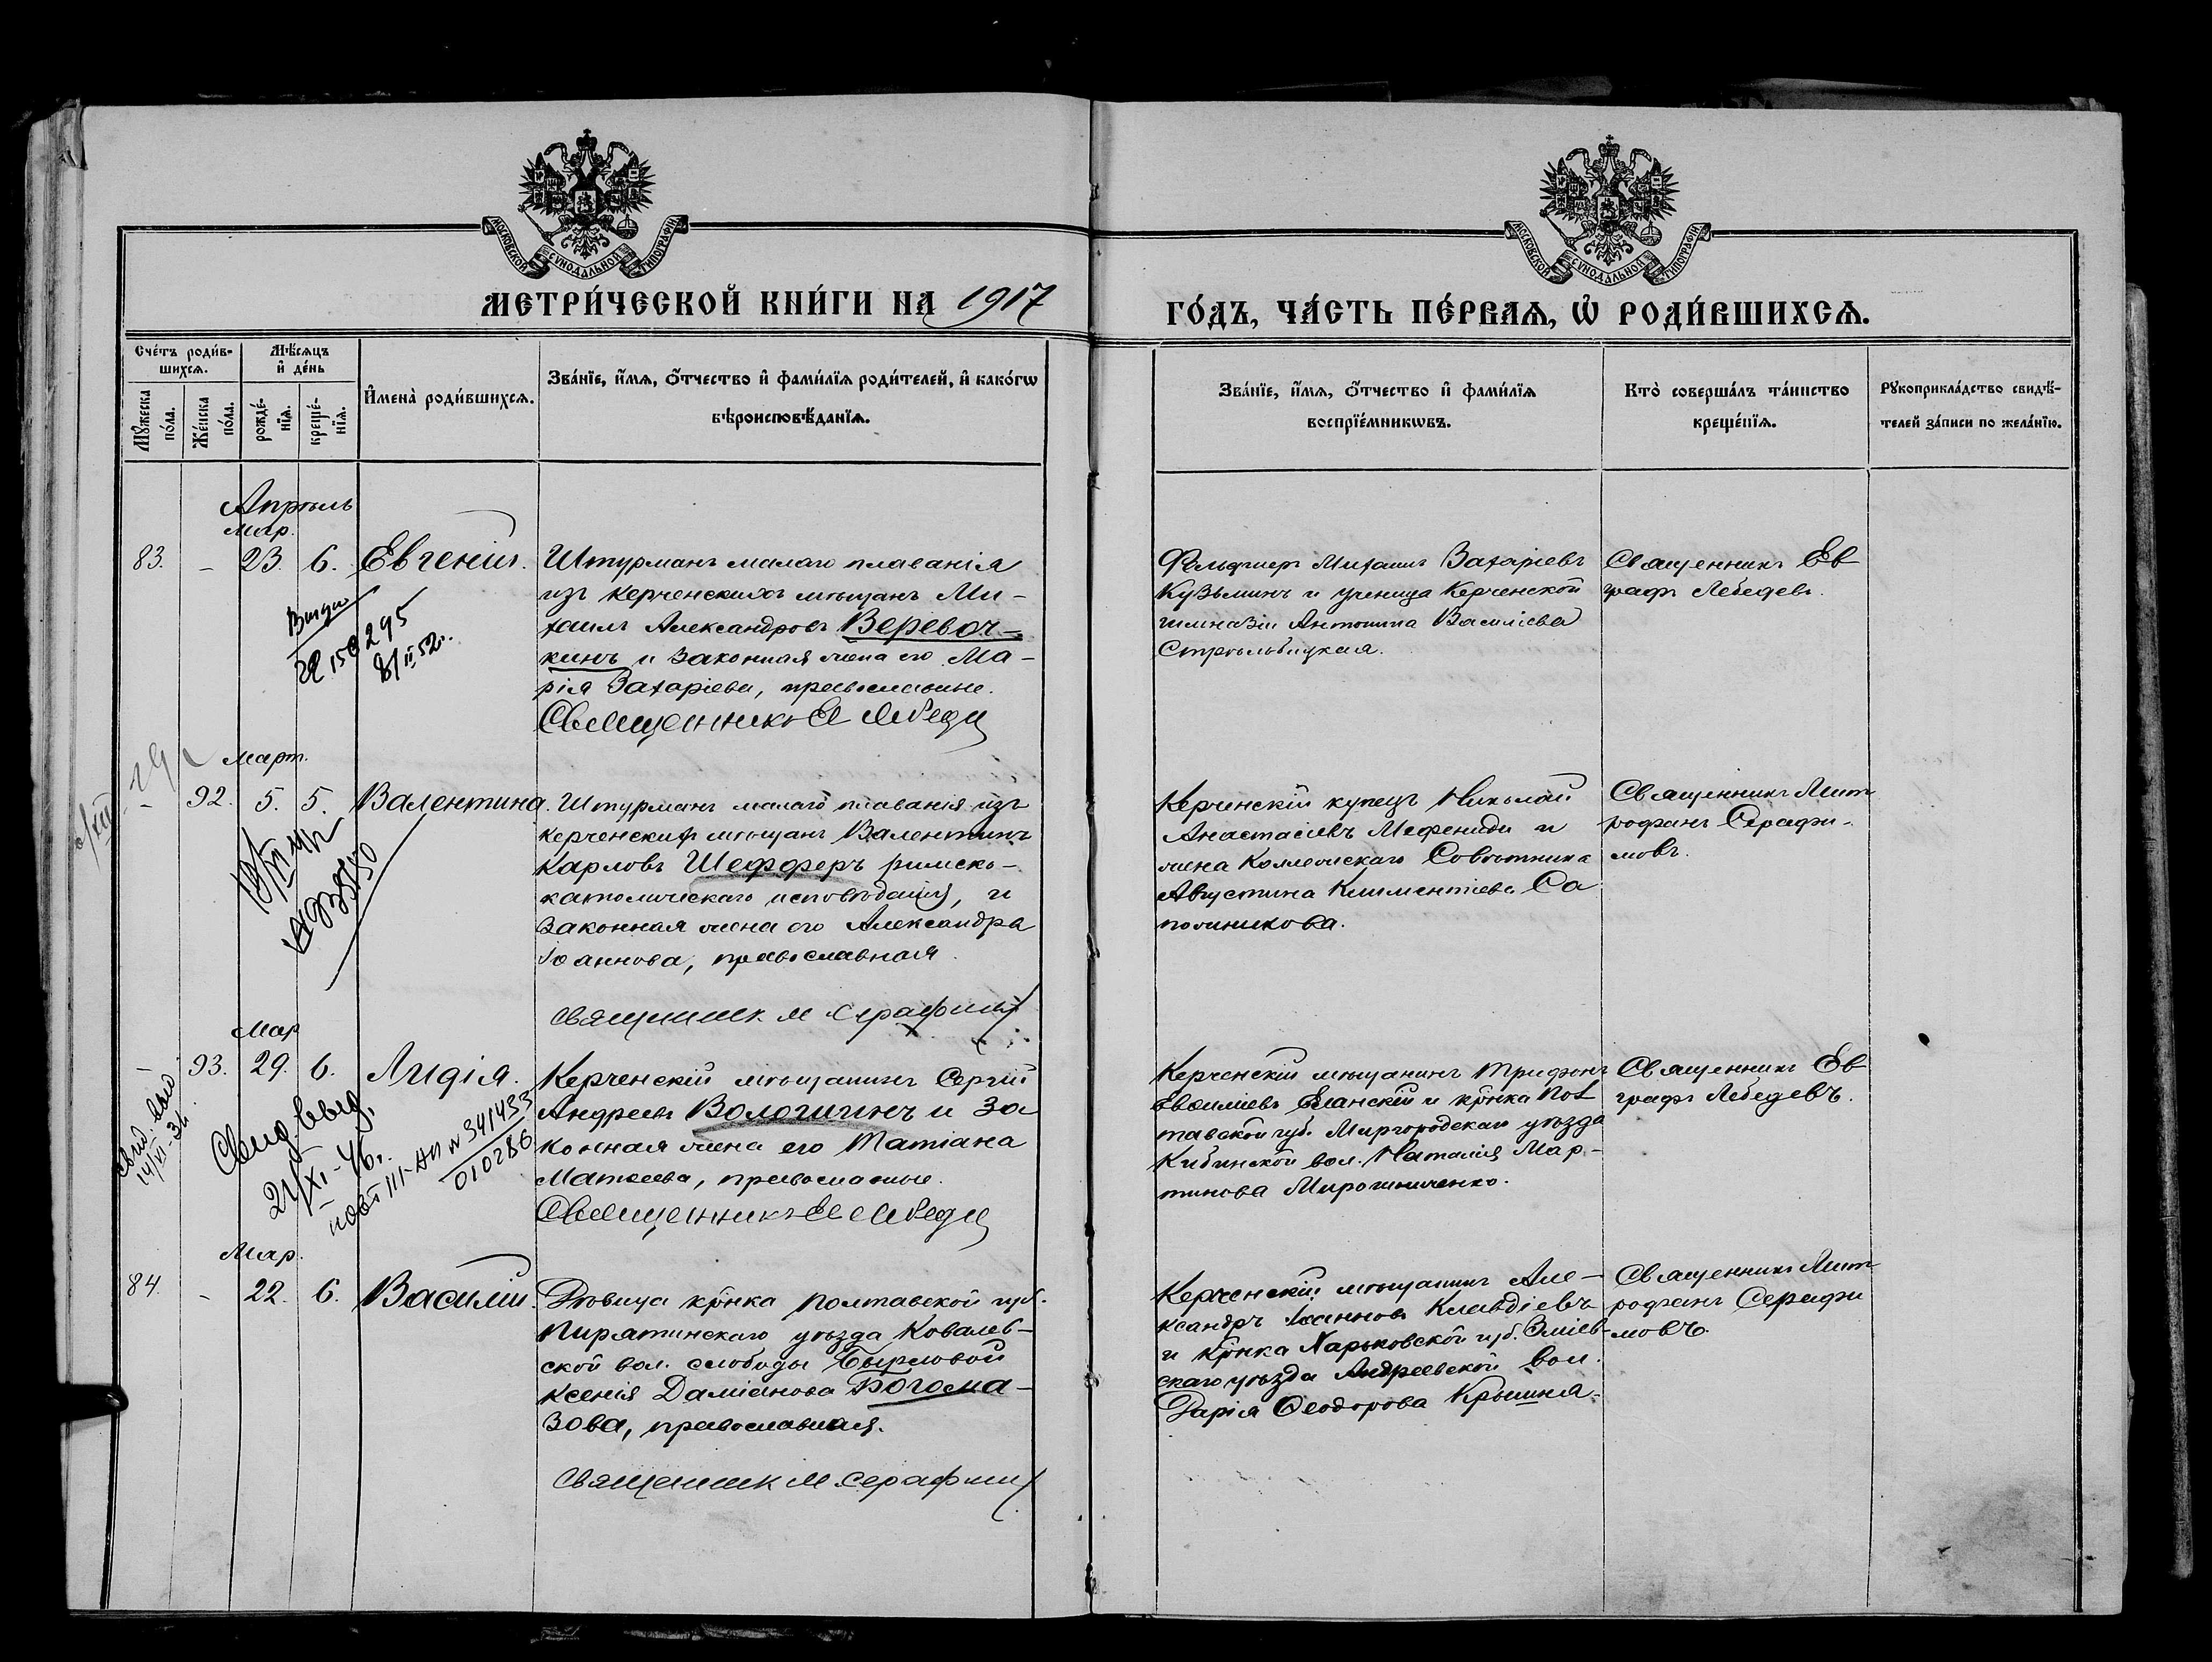 МОСКОВСКОЙ СѴНОДАЛЬНОЙ ТИПОГРАФІИ
МОСКОВСКОЙ СѴНОДАЛЬНОЙ ТИПОГРАФІИ
МЕТРИ́ЧЕСКОЙ КНИ́ГИ НА 1917
ГО́ДЪ, ЧА́СТЬ ПЕ́РВАѦ, Ѡ҆ РОДИ́ВШИХСѦ.
Сче́тъ роди́в-
шихсѧ.
Мѣ́сѧцъ
и҆ де́нь
Мꙋ́жеска
по́ла.
Же́нска
по́ла.
рожде́-
нїѧ.
креще́-
нїѧ.
И҆мена̀ роди́вшихсѧ.
Зва́нїе, и҆́мѧ, ѻ҆́тчество и҆ фами́лїѧ роди́телей, и҆ како́гѡ
вѣроисповѣ́данїѧ.
Зва́нїе, и҆́мѧ, ѻ҆́тчество и҆ фами́лїѧ
воспрїе́мникѡвъ.
Кто̀ соверша́лъ та́инство
креще́нїѧ.
Рꙋкоприкла́дство свидѣ́-
телей за́писи по жела́нїю.
Апрѣль
Мар.
83. - 23. 6. Евгеній.
Штурманъ малаго плаванія
изъ Керченскихъ мѣщанъ Ми-
хаилъ Александровъ Веревоч-
кинъ и законная жена его Ма-
рія Захаріева, православные.
Священникъ Е Лебеде
Фельдшеръ Михаилъ Захаріевъ
Кузьминъ и ученица Керченской
гимназіи Антонина Василіева
Стрѣльбицкая.
Священникъ Ев
графъ Лебедевъ.
150295
8/II 52.
Март.
- 92. 5. 5. Валентина.
Штурманъ малаго плаванія изъ
Керченскихъ мѣщанъ Валентинъ
Карловъ Шефферъ римско-
католическаго исповѣданія, и
законная жена его Александра
Іоаннова, православная.
Священник М Серафим
Керченскій купецъ Николай
Анастасіевъ Мефениди и
жена Коллежскаго Совѣтника
Августина Климентіева Са
пожникова.
Священникъ Мит
рофанъ Серафи-
мовъ.
Мар
- 93. 29. 6. Лидія.
Керченскій мѣщанинъ Сергій
Андреевъ Вологинъ и за
конная жена его Татіана
Матѳеева, православные.
Священникъ Ев Лебеде
Керченскій мѣщанинъ Трифонъ
Евсиміевъ Еланскій и кр҃нка Пол
тавской губ. Миргородскаго уѣзда
Кибинской вол. Наталія Мар-
тинова Мирошниченко.
Священникъ Ев
графъ Лебедевъ.
14/VI-34.
Свид выд.
21/XI-46г.
№ 341433
010286
Мар.
84. - 22. 6. Василій.
Дѣвица кр҃нка Полтавской губ.
Пирятинскаго уѣзда Ковалев-
ской вол. слободы Бырловой
Ксенія Даміанова Богома-
зова, православная.
Священник М Серафим
Керченскій мѣщанинъ Але-
ксандръ Іоанновъ Клавдіевъ
и кр҃нка Харьковской губ. Зміев-
скаго уѣзда Андреевской вол.
Дарія Ѳеодорова Крышня.
Священникъ Мит
рофанъ Серафи
мовъ.